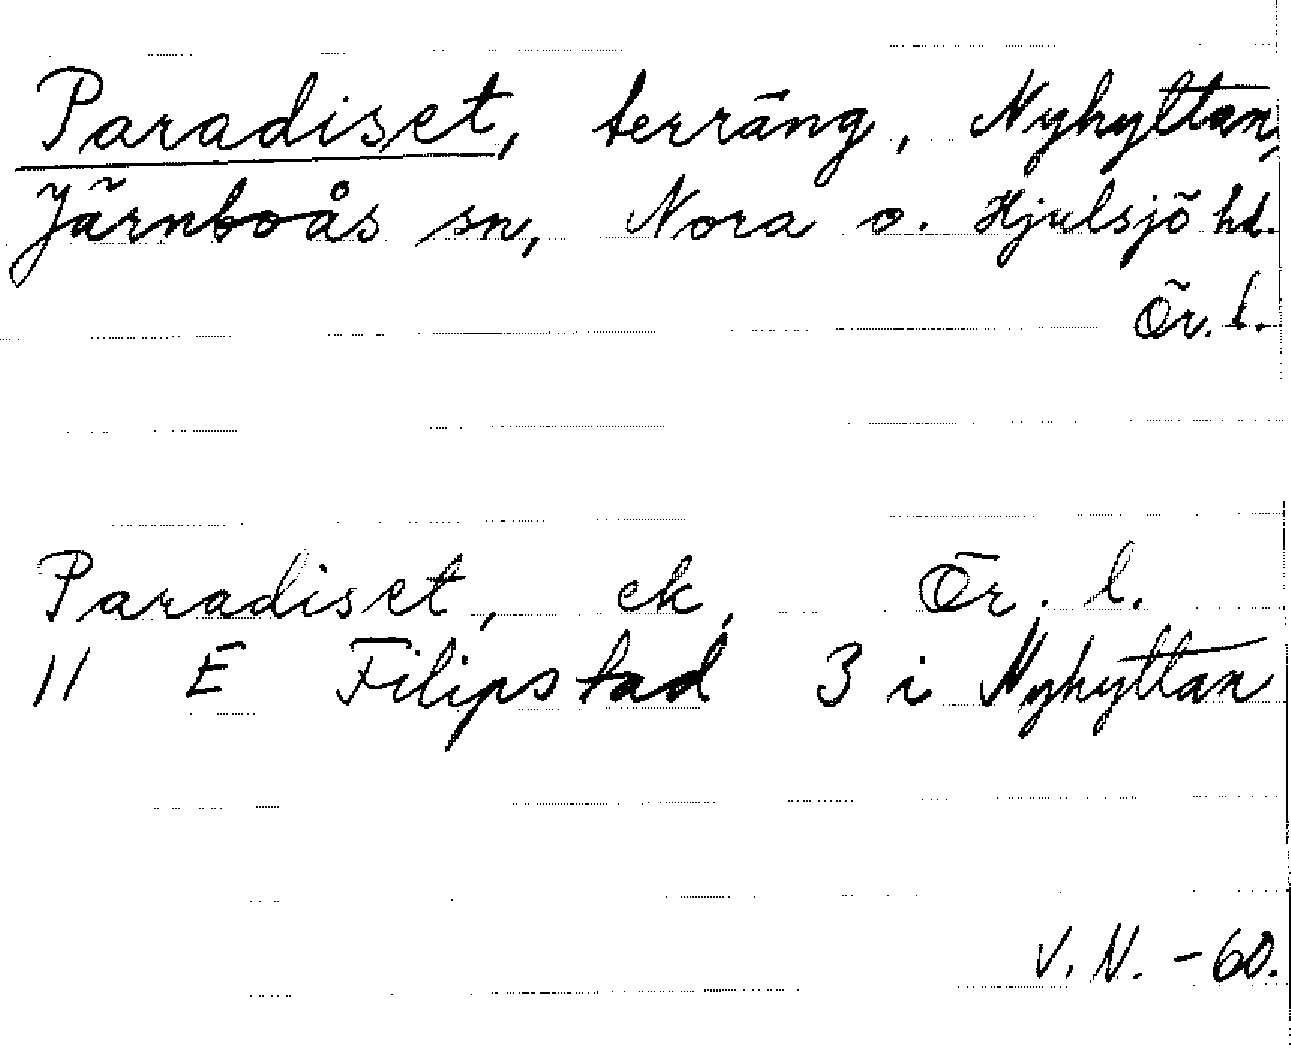 Paradiset, terräng, Nyhyttan,
Järnboås sn, Nora o. Hjulsjö hd.
Ör. l.
Paradiset, ek, Ör. l.
11 E Filipstad 3 i Nyhyttan
V. N. -60.